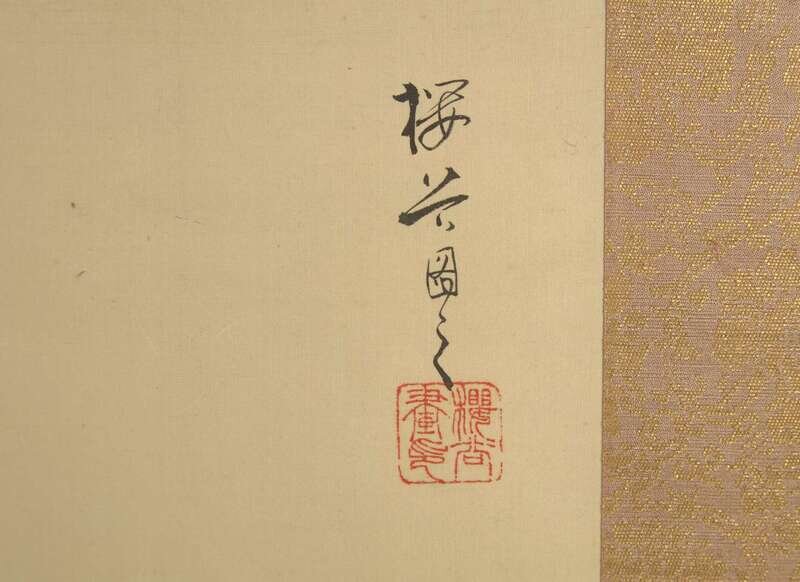 桜谷圖之
櫻谷
畫印